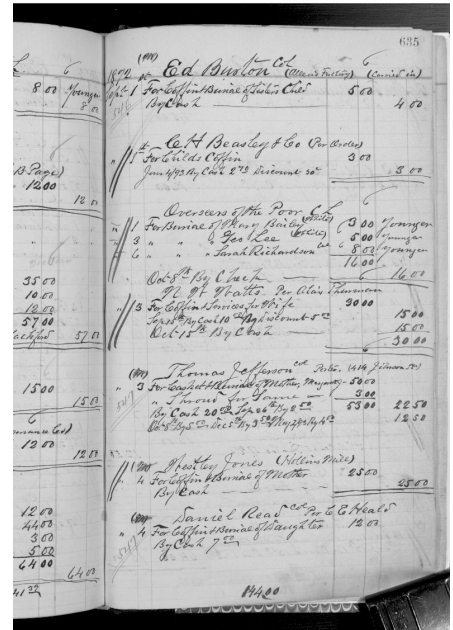 635
8 00 Younger
8 00
B Page)
12 00
12 0
35 00
10 00
12 00
57 00
57 0
15 00
15 0
12 00
12 00
12 00
44 00
3 00
5 00
64 00
64 00
1892 Ed Burton Col (Allens Factory) (Carried in)
Sept 1 For Coffin & Burial of Sisters Child 5 00
By Cash 4 00
C. H. Beasley & Co (Per Order)
5 For Childs Coffin 3 00
Jan 4/93 By Cash 2 70 Discount 30 3 00
Overseers of the Poor C L
1 For Burial of Mary Bailey 3 00 Younger
3 " " " Geo Lee 5 00 Younger
6 " " " Sarah Richardson Col 8 00 Younger
16 00
Oct 8th By Check 16 00
Watts Per Alex Thurman
3 For Coffin & Services for Wife 30 00
Sep 15th By Cash 10 Discount 5 15 00
Oct 15th By Cash 15 00
30 00
Thomas Jefferson Col (414 Johnson St)
3 For Casket & Burial of Mother, 50 00
" Shroud for Same 3 00
By Cash 20 Sep 26th By 2 50 53 00 22 50
12 50
Westley Jones (Hollins Mill)
4 For Coffin & Burial of Mother 25 00
By Cash 25 00
Daniel Read Col Per C E Heald
4 For Coffin & Burial of Daughter 12 00
By Cash 7 00
144 00